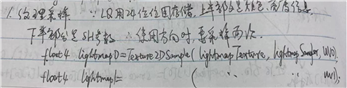 1. 处理采样 ∵ LQ用2个位图存储，上半部分是颜色、亮度信息
下半部分是SH参数 ∴ 使用方向时，要采样两次.
float4 lightmap0 = Texture2DSample(LightmapTexture, LightmapSampler, UV0);
float4 lightmap1 = ( , UV1);